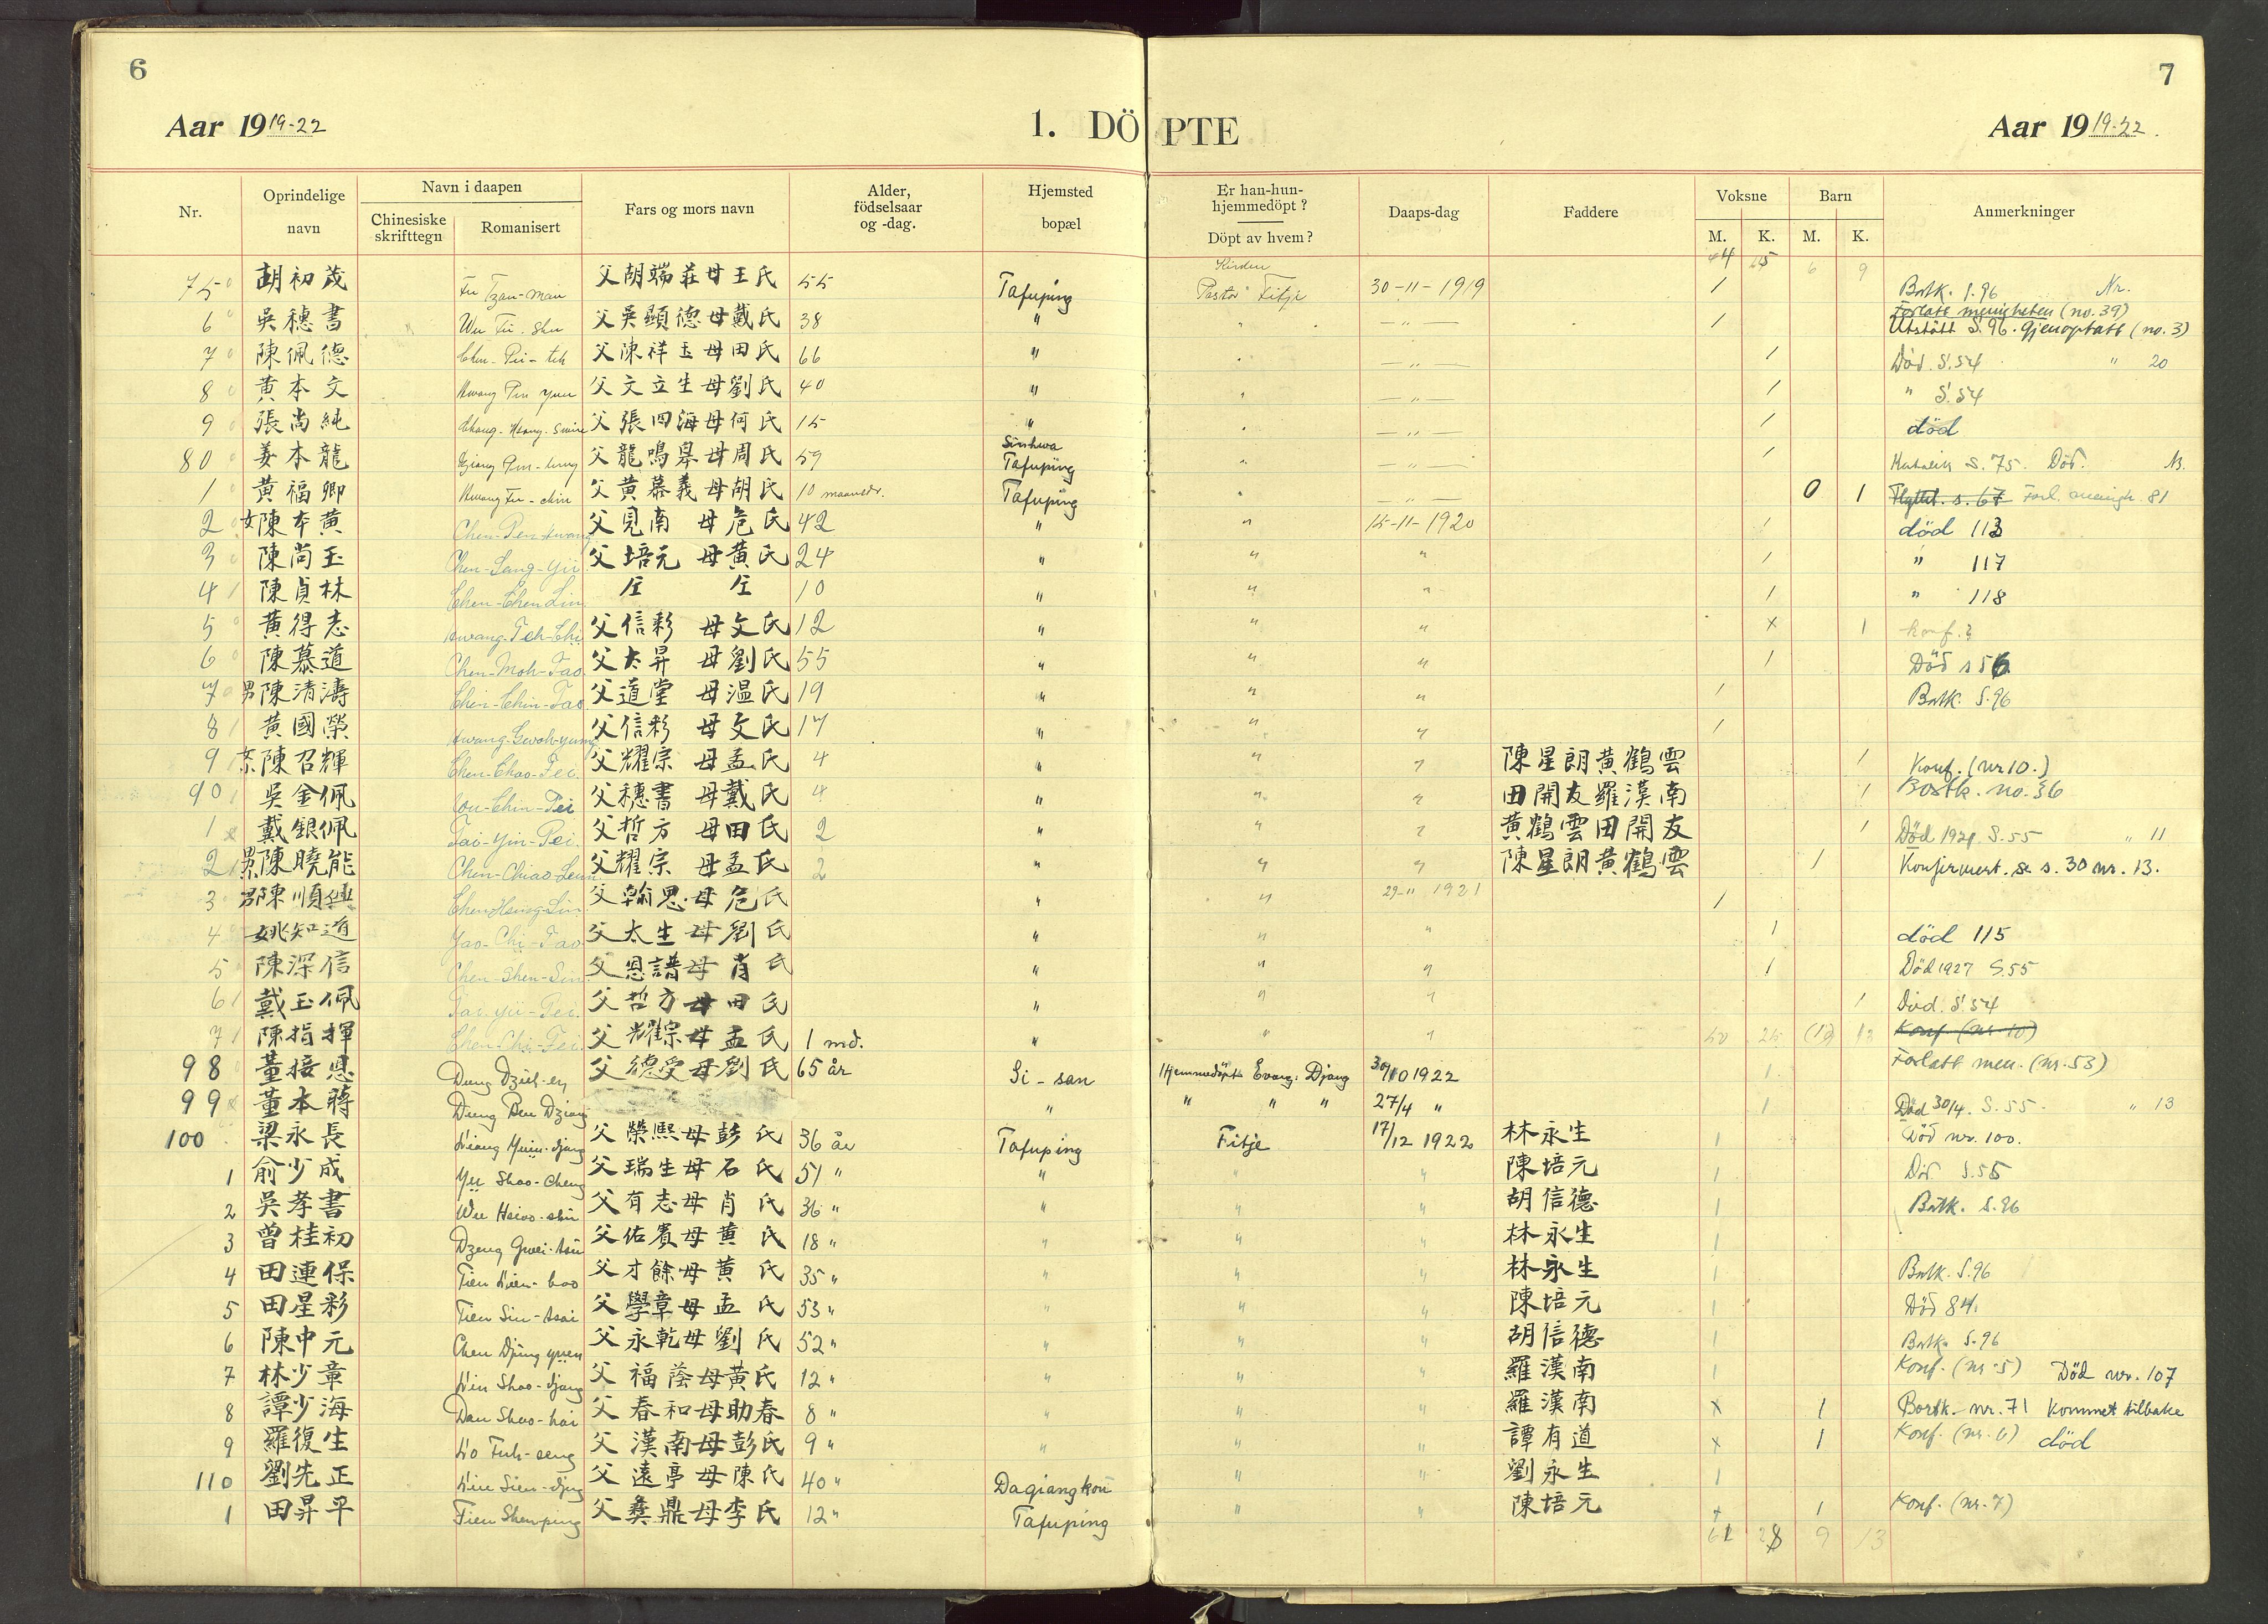 6
7
Aar 1919-22
1. DÖPTE
Aar 1919-22.
Nr.
Oprindelige navn
Navn i daapen
Chinesiske skrifttegn
Romanisert
Fars og mors navn
Alder, födselsaar og -dag.
Hjemsted bopæl
Er han-hun-hjemmedöpt?
Döpt av hvem?
Daaps-dag
Faddere
Voksne
M. K.
Barn
M. K.
Anmerkninger
75 胡初茂 父胡端莊母王氏 55 Tafuping Pastor Fitje 30-11-1919 1 Bortk. S.96 Nr.
6 吳穗書 Wu Fu-shu 父吳顯德母戴氏 38 " — " — 1 Forlatt menigheten (no. 39) Utstött S.96. Gjenoptatt (no. 3)
7 陳佩德 Chen-Pei-teh 父陳祥玉母田氏 66 " — " — 1 Död. S.54 " 20
8 黃本文 Hwang Pin yuen 父文立生母劉氏 40 " — " — 1 " S.54
9 張尚純 父張四海母何氏 15 " — " — 1 död
80 姜本龍 父龍鳴皋母周氏 59 Sinhwa Tafuping — " — 1 S.75. Död.
1 黃福卿 父黃慕義母胡氏 10 maaneder. Tafuping — " — 0 1 Flyttet. s. 67 Forl. menigh. 81
2 女陳本黃 Chen-Pen-Hwang 父見南 母危氏 42 " " 15-11-1920 1 död 113
3 陳尚玉 Chen-Sang-Yü 父培元 母黃氏 24 " " " 1 " 117
4 陳貞林 Chen-Chen Lin 仝 仝 10 " " " 1 " 118
5 黃得志 Hwang-Teh-Chi 父信彩 母文氏 12 " " " x 1 konf. 3
6 陳慕道 Chen-Moh-Tao 父太昇 母劉氏 55 " " " 1 Död s 56
7 男陳清濤 Chen-Chin-Tao 父道堂 母溫氏 19 " " " 1 Bortk. S.96
8 黃國榮 Hwang-Gwoh-yung 父信彩 母文氏 17 " " " 1
9 陳召輝 Chen-Chao-Fei. 父耀宗 母孟氏 4 " " " 陳星朗黃鶴雲 1 Konf. (nr 10.)
90 吳金佩 Wu-Chin-Pei 父穗書 母戴氏 4 " " " 田開友羅漢南 1 Bortk. no. 36
1 戴銀佩 Tai-Yin-Pei. 父哲方 母田氏 2 " " " 黃鶴雲田開友 1 Död S.55 " 11
2 陳曉能 父耀宗 母孟氏 2 " " " 陳星朗黃鶴雲 1 Konfirmert. se s. 30 nr. 13.
3 陳順 父翰思母危氏 " " 29-11 1921 1
4 姚知道 Yao-Chi-Tao 父太生母劉氏 " " " 1 död 115
5 陳深信 Chen-Shen-Sin 父恩譜母肖氏 " " " 1 Död 1927 S.55
6 戴玉佩 Tai-yü-Pei. 父哲方母田氏 " " " 1 Död. S.54
7 陳指揮 Chen-Chi-Fei. 父耀宗母孟氏 1 md. " " " Konf (nr. 10)
98 董接恩 Dung Dzieh-en 父德受母劉氏 65 år Si-san Hjemmedöpt Evang. Djang 30/10 1922 1 Forlatt men. (nr. 53)
99 董本蔣 Dung Ben Dziang " " " " 27/4 " 1 Död 30/4. S.55 " 13
100 梁永長 Liang Yuin-djang 父榮熙母彭氏 36 år Tafuping Fitje 17/12 1922 林永生 1 Död nr. 100.
1 俞少成 Yü Shao-cheng 父瑞生母石氏 51 " " " " 陳培元 1 Död S.55
2 吳孝書 Wu Hsiao-shu 父有志母肖氏 36 " " " " 胡信德 1 Bortk. S.96
3 曾桂初 Dzeng Gwei-tsu 父佑賓母黃氏 18 " " " " 林永生 1
4 田連保 Tien Lien-bao 父才餘母黃氏 35 " " " " 林永生 1 Bortk. S.96
5 田星彩 Tien Sin-tsai 父學章母孟氏 53 " " " " 陳培元 1 Död 84.
6 陳中元 Chen Djung yuen 父永乾母劉氏 52 " " " " 胡信德 1 Bortk. S.96
7 林少章 Lin Shao-djang 父福蔭母黃氏 12 " " " " 羅漢南 1 Konf. (nr. 5) Död nr. 107
8 譚少海 Dan Shao-hai 父春和母助春 8 " " " " 羅漢南 x 1 Bortk. nr. 71 Kommet tilbake
9 羅復生 Lo Fuh-seng 父漢南母彭氏 9 " " " " 譚有道 x 1 Konf. (nr. 6) död
110 劉先正 Liu Sien-djeng 父遠亭母陳氏 40 " Daqiangkou " " 劉永生 1
1 田昇平 Tien Shen-ping 父彝鼎母李氏 12 " Tafuping " " 陳培元 x 1 Konf. (nr. 7)
61 28 9 13